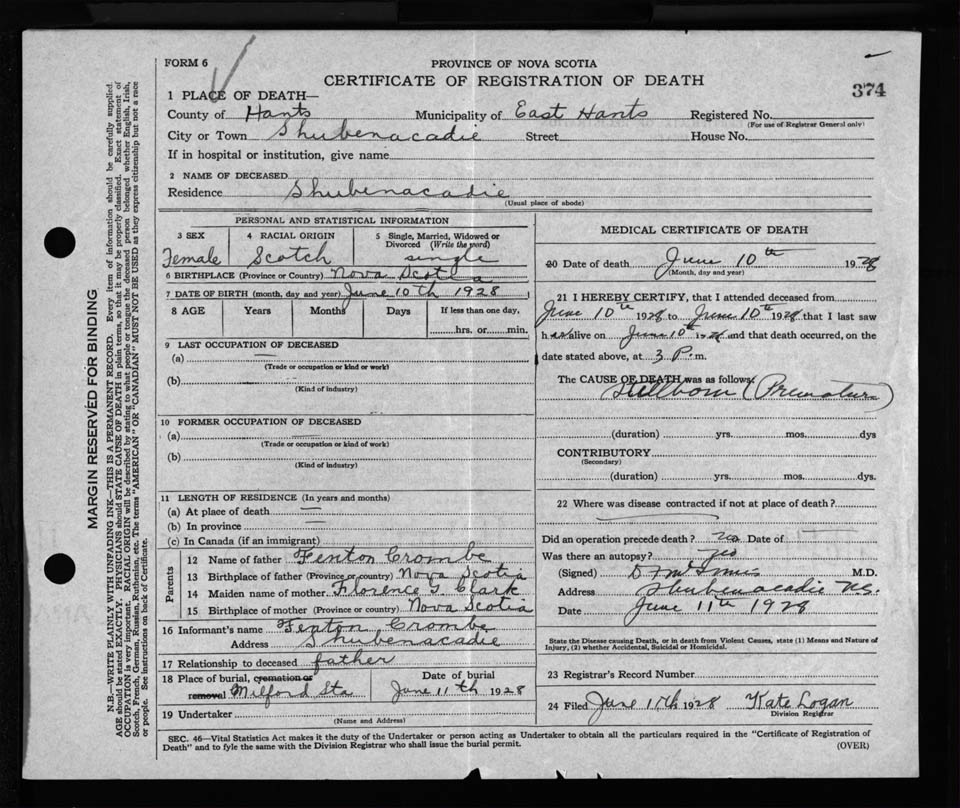 FORM 6
PROVINCE OF NOVA SCOTIA
CERTIFICATE OF REGISTRATION OF DEATH
374
1 PLACE OF DEATH—
County of Hants Municipality of East Hants Registered No.
(For use of Registrar General only)
City or Town Shubenacadie Street House No.
If in hospital or institution, give name
2 NAME OF DECEASED
Residence Shubenacadie
(Usual place of abode)
PERSONAL AND STATISTICAL INFORMATION
3 SEX 4 RACIAL ORIGIN 5 Single, Married, Widowed or Divorced (Write the word)
Female Scotch single
6 BIRTHPLACE (Province or Country) Nova Scotia
7 DATE OF BIRTH (month, day and year) June 10th 1928
8 AGE Years Months Days If less than one day.
hrs. or min.
9 LAST OCCUPATION OF DECEASED
(a) —
(Trade or occupation or kind or work)
(b)
(Kind of industry)
10 FORMER OCCUPATION OF DECEASED
(a)
(Trade or occupation or kind of work)
(b)
(Kind of industry)
11 LENGTH OF RESIDENCE (In years and months)
(a) At place of death —
(b) In province —
(c) In Canada (if an immigrant)
Parents
12 Name of father Fenton Crombe
13 Birthplace of father (Province or country) Nova Scotia
14 Maiden name of mother Florence G Clark
15 Birthplace of mother (Province or country) Nova Scotia
16 Informant's name Fenton Crombe
Address Shubenacadie
17 Relationship to deceased father
18 Place of burial, cremation or removal Milford Sta
Date of burial June 11th 1928
19 Undertaker
(Name and Address)
MEDICAL CERTIFICATE OF DEATH
20 Date of death June 10th 1928
(Month, day and year)
21 I HEREBY CERTIFY, that I attended deceased from
June 10th 1928 to June 10th 1928 that I last saw
h alive on June 10th 1928 and that death occurred, on the
date stated above, at 3 P. m.
The CAUSE OF DEATH was as follows:
Stillborn (Premature)
(duration) yrs. mos. dys
CONTRIBUTORY
(Secondary)
(duration) yrs. mos. dys.
22 Where was disease contracted if not at place of death?
Did an operation precede death? Date of —
Was there an autopsy?
(Signed) M.D.
Address Shubenacadie N.S.
Date June 11th 1928
State the Disease causing Death, or in death from Violent Causes, state (1) Means and Nature of
Injury, (2) whether Accidental, Suicidal or Homicidal.
23 Registrar's Record Number
24 Filed June 11th 1928 Kate Logan
Division Registrar
SEC. 46—Vital Statistics Act makes it the duty of the Undertaker or person acting as Undertaker to obtain all the particulars required in the "Certificate of Registration of
Death" and to fyle the same with the Division Registrar who shall issue the burial permit.
(OVER)
MARGIN RESERVED FOR BINDING
N.B.—WRITE PLAINLY WITH UNFADING INK—THIS IS A PERMANENT RECORD. Every item of information should be carefully supplied.
AGE should be stated EXACTLY. PHYSICIANS should STATE CAUSE OF DEATH in plain terms, so that it may be properly classified. Exact statement of
OCCUPATION is very important. RACIAL ORIGIN will be described by stating to what people or tongue the deceased person belonged whether English, Irish,
Scotch, French, German, Russian, Ruthenian, etc. The terms "AMERICAN" OR "CANADIAN" MUST NOT BE USED as they express citizenship but not a race
or people. See instructions on back of Certificate.